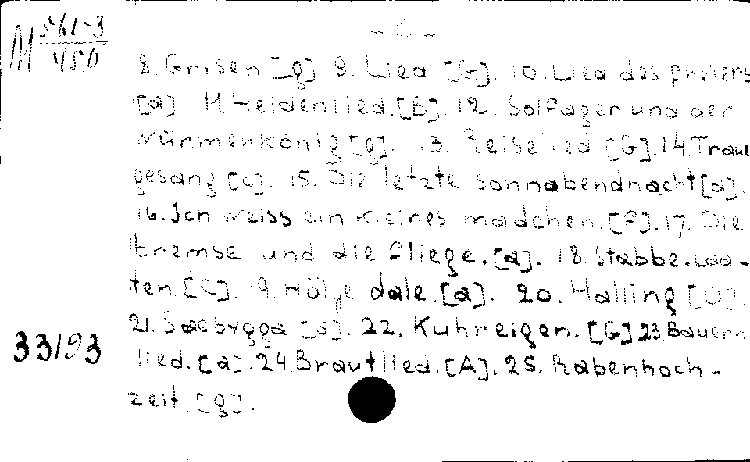 M 561-3
450
- 2 -
8. Grisen [g] 9. Lied [G]. 10. Lied des Freiers
[a] 11. Heldenlied. [b]. 12. Solfager und der
Würmerkönig [g]. 13. Reiselied [G]. 14. Trau-
gesang [c]. 15. Die letzte Sonnabendnacht [a].
16. Ich weiss ein kleines mädchen. [F]. 17. Die
Bremse und die Fliege. [a]. 18. Stabbe-Laa-
ten. [C]. 19. Hölje dale. [a]. 20. Halling [D].
21. Saebygga [a]. 22. Kuhreigen. [G] 23. Bauern
33193
lied. [a]. 24. Brautlied. [A]. 25. Rabenhoch-
zeit. [g].